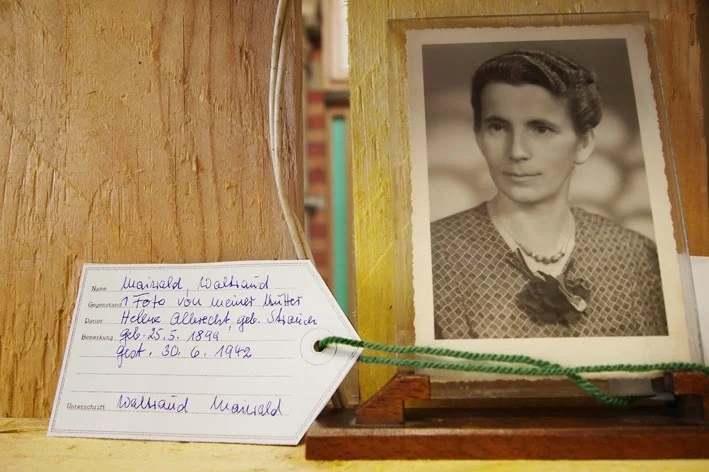 Name Maiwald, Waltraud
Gegenstand 1 Foto von meiner Mutter
Datum Helene Albrecht, geb. Strauch
Bemerkung geb. 25. 5. 1899
gest. 30. 6. 1942
Unterschrift Waltraud Maiwald